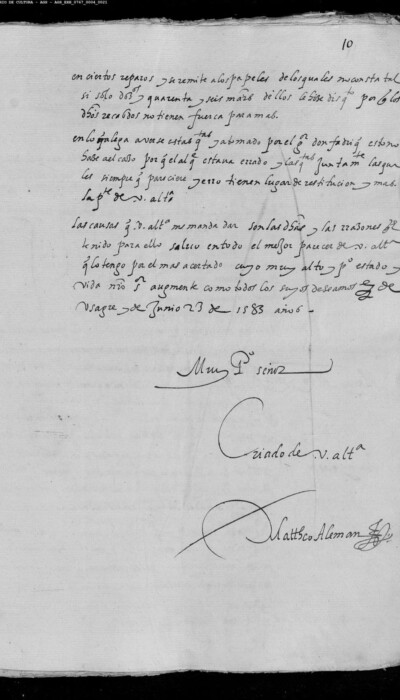 10
en ciertos reparos y se remite a los papeles de los quales no consta tal
si solo y quarenta y seis de ellos le hize por los
dhos recaudos no tienen fuerça para mas.
en lo q alega averse y abonado por el don fadriq esto no
haze al caso por q el al q estava errado y las
les siempre q pareciere y erro tienen lugar de restitucion y mas
la pte de v. altª
Las causas q v. altª me manda dar son las dhas y las rrazones q e
tenido para ello salvo en todo el mejor parecer de v. altª
q lo tengo por el mas acertado cuyo muy alto y pº estado y
vida nro sr augmente como todos los suyos deseamos de
Usagre y de Junio 23 de 1583 años
Muy Pº señor
Criado de v. altª
Mattheo Aleman